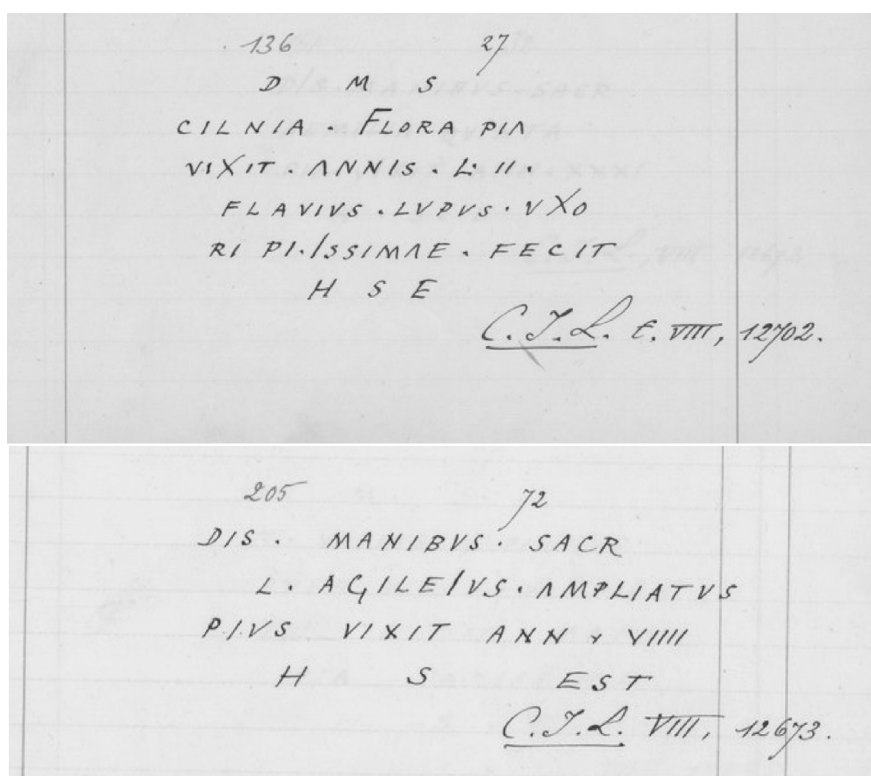 136 27
D M S
CILNIA · FLORA PIA
VIXIT · ANNIS · L·II·
FLAVIVS · LVPVS · VXO
RI PI·ISSIMAE · FECIT
H S E
C.I.L. t. VIII, 12702.
205 72
DIS · MANIBVS · SACR
L · AGILEIVS · AMPLIATVS
P·IVS VIXIT ANN VIIII
H S EST
C.I.L. VIII, 12673.